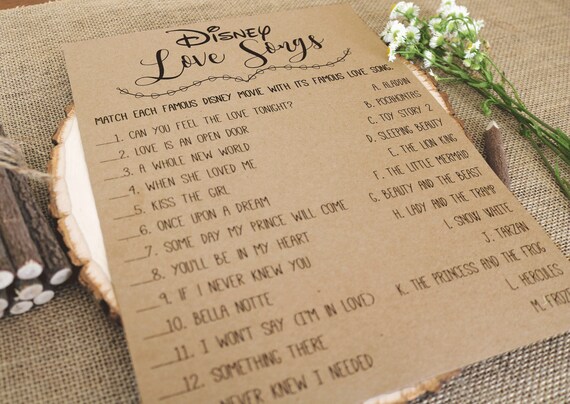 Disney
Love Songs
MATCH EACH FAMOUS DISNEY MOVIE WITH ITS FAMOUS LOVE SONG.
___1. CAN YOU FEEL THE LOVE TONIGHT?
___2. LOVE IS AN OPEN DOOR
___3. A WHOLE NEW WORLD
___4. WHEN SHE LOVED ME
___5. KISS THE GIRL
___6. ONCE UPON A DREAM
___7. SOME DAY MY PRINCE WILL COME
___8. YOU'LL BE IN MY HEART
___9. IF I NEVER KNEW YOU
___10. BELLA NOTTE
___11. I WON'T SAY (I'M IN LOVE)
___12. SOMETHING THERE
NEVER KNEW I NEEDED
A. ALADDIN
B. POCAHONTAS
C. TOY STORY 2
D. SLEEPING BEAUTY
E. THE LION KING
F. THE LITTLE MERMAID
G. BEAUTY AND THE BEAST
H. LADY AND THE TRAMP
I. SNOW WHITE
J. TARZAN
K. THE PRINCESS AND THE FROG
L. HERCULES
M. FROZE